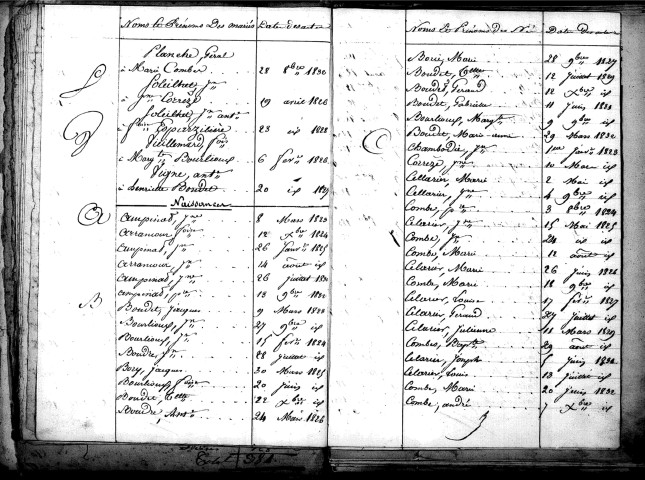 Noms et Prénoms Des mariés Date des actes
Planche Géral
à Marie Combe 28 8bre 1830
Soleilhet, Jn
à Jne Correze 19 avril 1826
Soleilhet Jn ante
à 23 id 1828
Vuillemard, frois
à Margte Bourlioux 6 fevr 1826
Vigne, ante
à Henriette Boudet 20 id 1829
Naissances
A
Campinad, Jne 8 Mars 1823
Arramour, 12 xbre 1824
Campinad, Jn 26 Janvr 1825
Arramour, Jn 14 aout id
Campinad, Jne 26 Juillet 1831
Campinad, Jn 13 9bre 1832
B
Boudet, Jacques 9 Mars 1823
Bourlioux, Jn 27 9bre id
Bourlioux, Jn 15 fevr 1824
Boudre, Jn 28 Juillet id
Bory, Jacques 30 Mars 1825
Bourlioux, 20 Juin id
Boudet, 22 xbre id
Boudre, Ante 24 Mars 1826
Noms et Prénoms des Nés Date des actes
Borie, Marie 28 9bre 1827
Boudet, 12 Juillet 1829
Boudet, Geraud 12 xbre id
Boudet, Gabrielle 11 Juin 1828
Bourlioux, Margte 9 9bre id
Boudet Marie anne 29 Mars 1832
C
Chambodie, Jn 1er Janvr 1823
Correze, Jne 10 Mai id
Cellarier, Marie 2 Mai id
Cellarier, Jne 4 9bre id
Combe, Jn 3 8bre 1824
Celarier, Jn 15 Mai 1825
Combe, Jn 24 id id
Combe, Marie 12 aout id
Celarier, Marie 26 Juin 1826
Combe, Marie 18 9bre id
Celarier, Louise 17 fevr 1827
Celarier, Geraud 27 Juillet id
Celarier, Julienne 11 Mars 1829
Combes, Bapte 29 aout id
Celarier, Joseph 5 Juin 1830
Celarier, Louis 13 Juillet id
Combe, Marie 20 Juin 1832
Combe, andré 7 xbre id